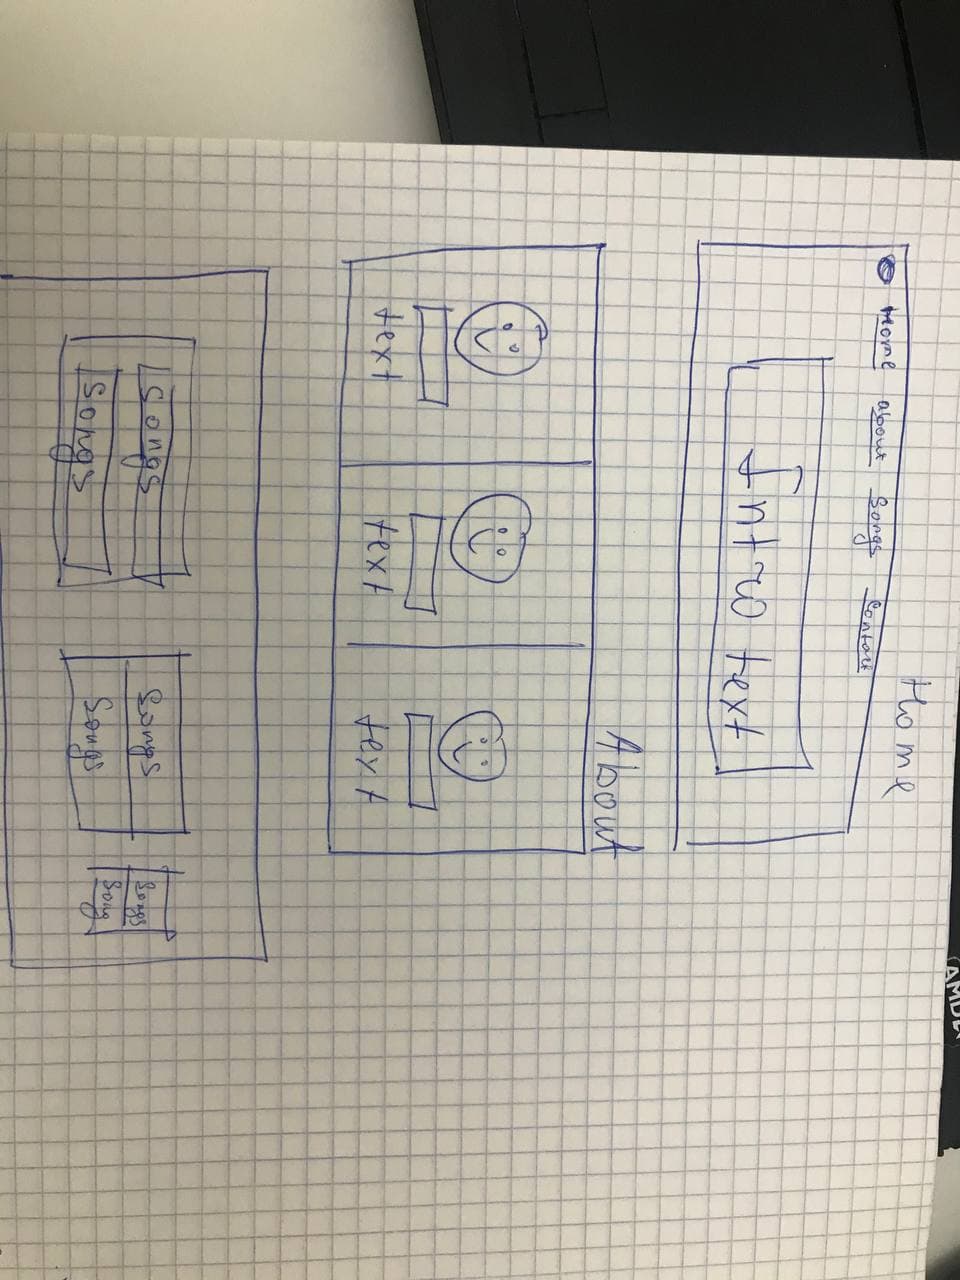 Home
Home about Songs Contact
Intro text
About
text text text
Songs Songs Songs
Songs Songs Song
AMD